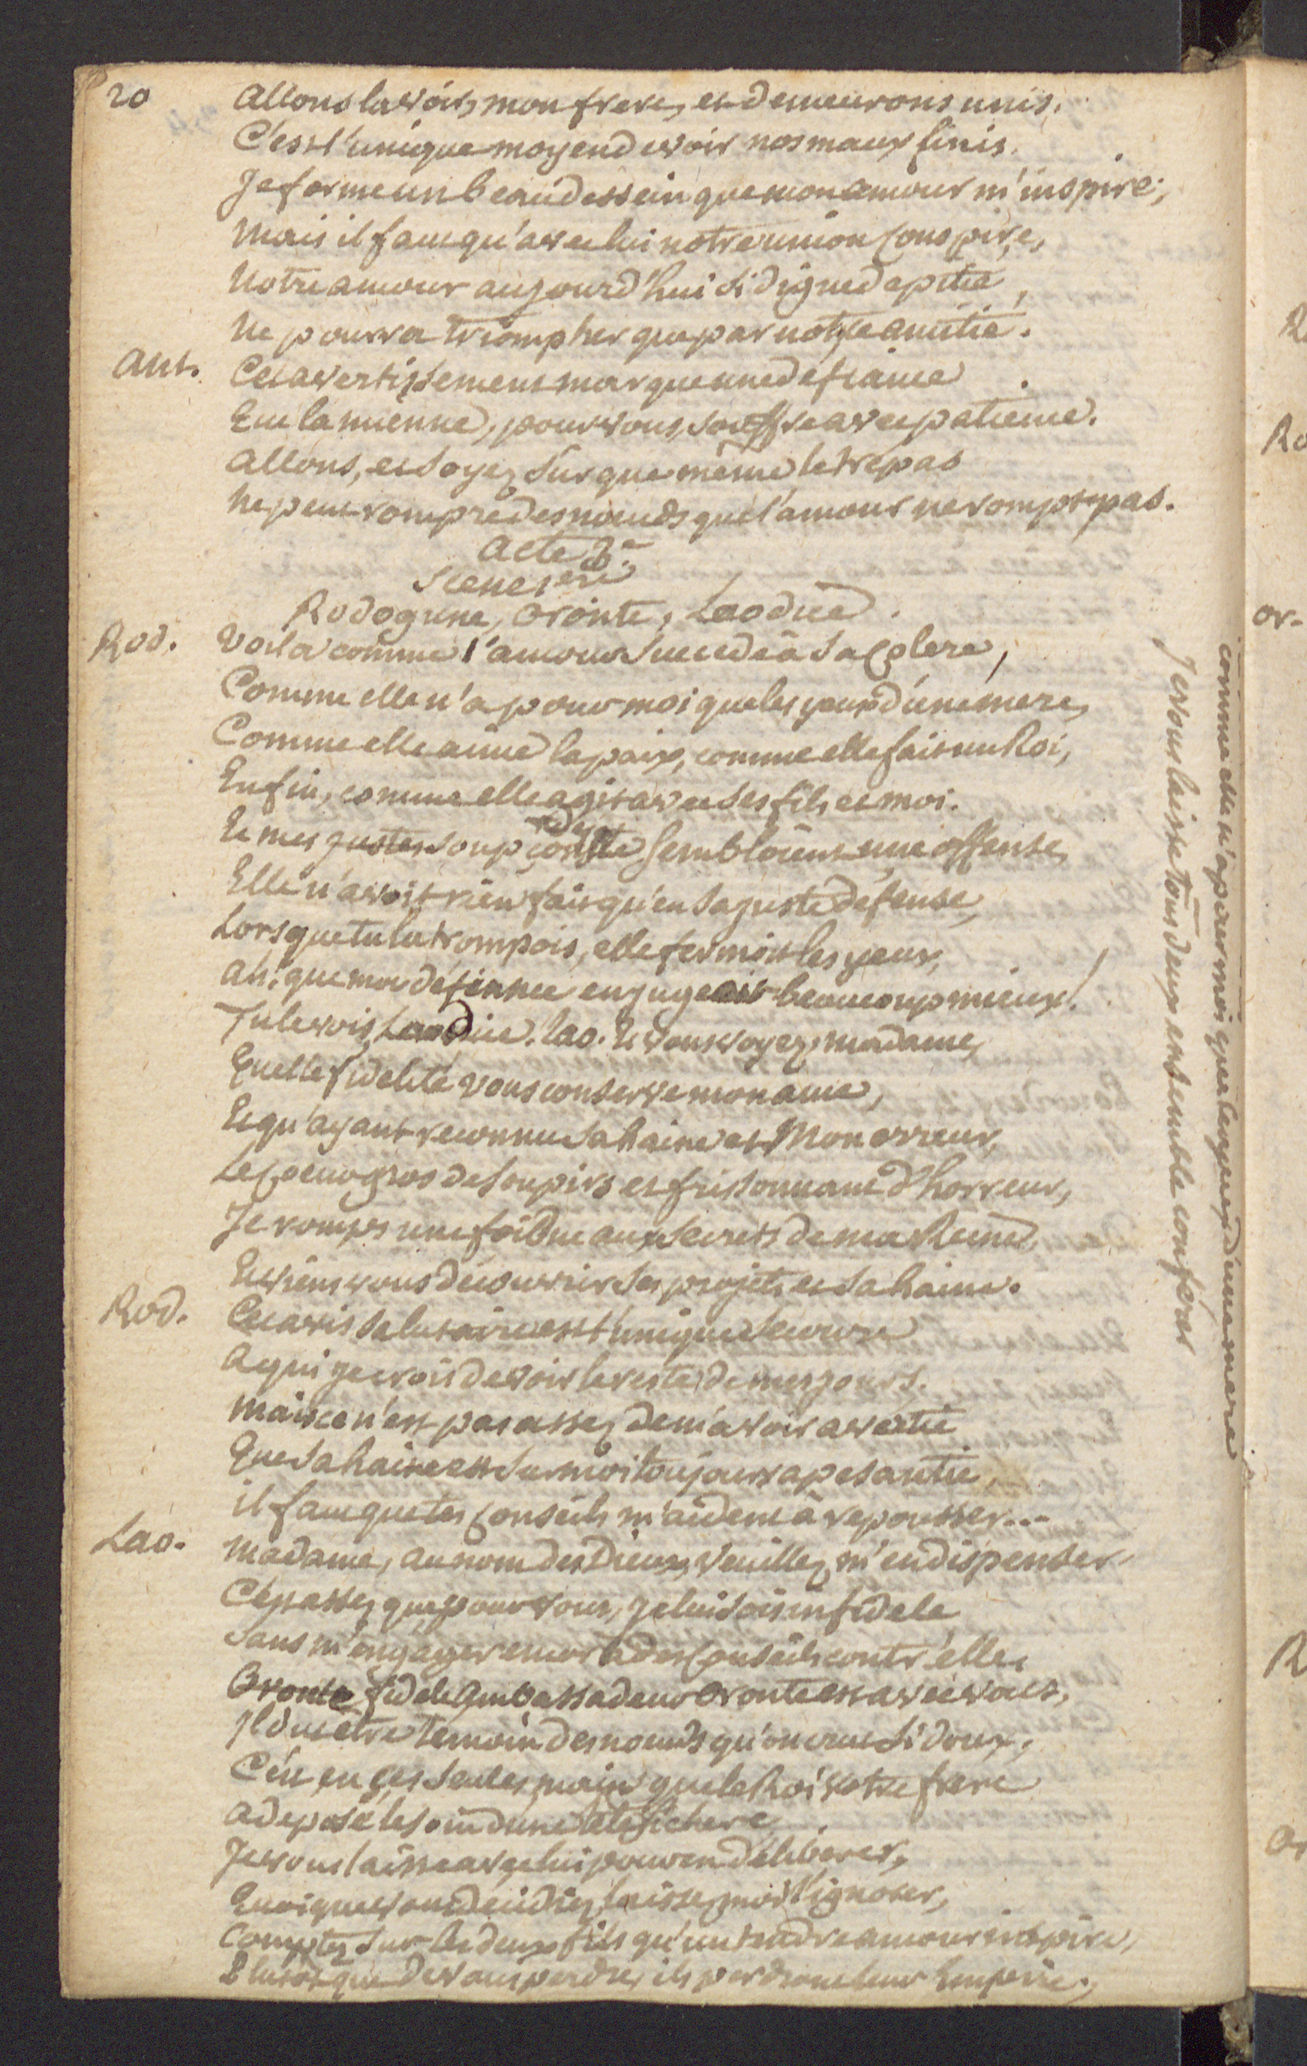 20
Allons la voir, mon frere, et demeurons unis,
C'est l'unique moyen de voir nos maux finis.
Je forme un beau dessein que mon amour m'inspire;
Mais il faut qu'avec lui notre union conspire,
Notre amour aujourd'hui si digne de pitié,
Ne pourra triompher que par notre amitié.
Ant. Cet avertissement marque une defiance
Que la mienne, pour vous, souffre avec patience.
Allons, et soyez sur que même le trepas
Ne peut rompre des noeuds que l'amour ne rompt pas.
Acte 3e
Scene 1ere
Rodogune, Oronte, Laodice.
Rod. Voila comme l'amour succede à sa colere,
Comme elle n'a pour moi que les yeux d'une mere,
Comme elle aime la paix, comme elle fait un Roi,
Enfin, comme elle agit avec ses fils et moi.
Et mes justes soupçons te sembloient une offense,
Elle n'avoit rien fait qu'en sa juste défense,
Lorsque tu la trompois, elle fermoit les yeux,
Ah! que ma défiance en jugeoit beaucoup mieux!
Tu le vois, Laodice. Lao. Et vous voyez, madame,
Quelle fidelité vous conserve mon ame,
Et qu'ayant reconnu sa haine et Mon erreur,
Le coeur gros de soupirs et frissonnant d'horreur,
Je romps une foi due aux secrets de ma Reine,
Et viens vous découvrir ses projets et sa haine.
Rod. Cet avis salutaire est l'unique secours
A qui je crois devoir le reste de mes jours.
Mais ce n'est pas assez de m'avoir avertie
Que sa haine est sur moi toujours apesantie,
il faut que tes conseils m'aident à repousser...
Lao. Madame, au nom des Dieux, veuillez m'en dispenser
C'est assez que pour vous, je lui sois infidele
Sans m'engager encor à des conseils contr'elle.
Oronte fidele ambassadeur Oronte est avec vous,
Il dut être temoin des noeuds qu'on crut si doux,
C'est en ses seules mains que le Roi votre frere
A deposé le soin d'une tête si chere,
Je vous laisse avec lui pour en déliberer,
Quoique vous decidiez, laissez moi l'ignorer,
Comptez sur les deux fils qu'un tendre amour inspire,
Plutot que de vous perdre, ils perdront leur Empire.
comme elle n'a pour moi que les yeux d'une mere
Je vous laisse tous deux ensemble conférer
R
Ro
or-
R
Or